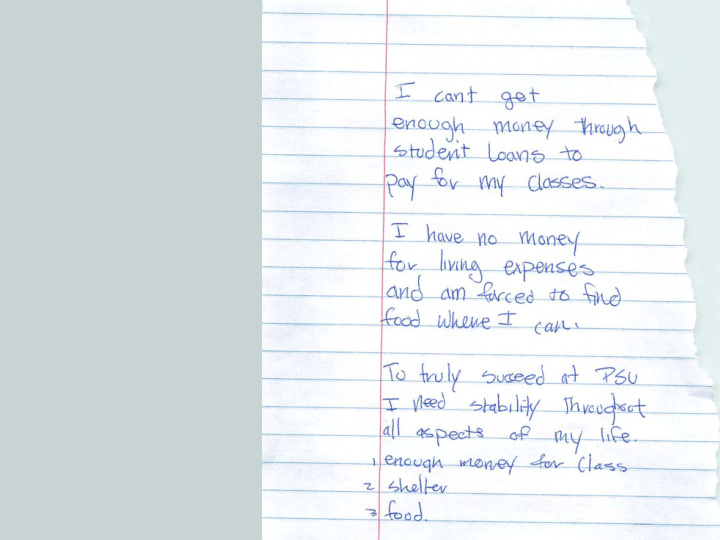 I cant get
enough money through
student Loans to
pay for my classes.
I have no money
for living expenses
and am forced to find
food where I can.
To truly succeed at PSU
I need stability throughout
all aspects of my life.
1 enough money for class
2 shelter
3 food.